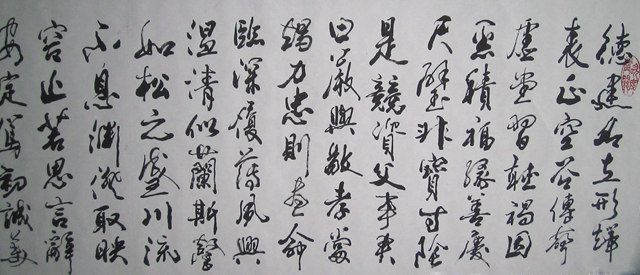 德建名立形端
表正空谷傳聲
虛堂習聽禍因
惡積福緣善慶
尺璧非寶寸陰
是競資父事君
曰嚴與敬孝當
竭力忠則盡命
臨深履薄夙興
溫清似蘭斯馨
如松之盛川流
不息淵澄取映
容止若思言辭
安定篤初誠美